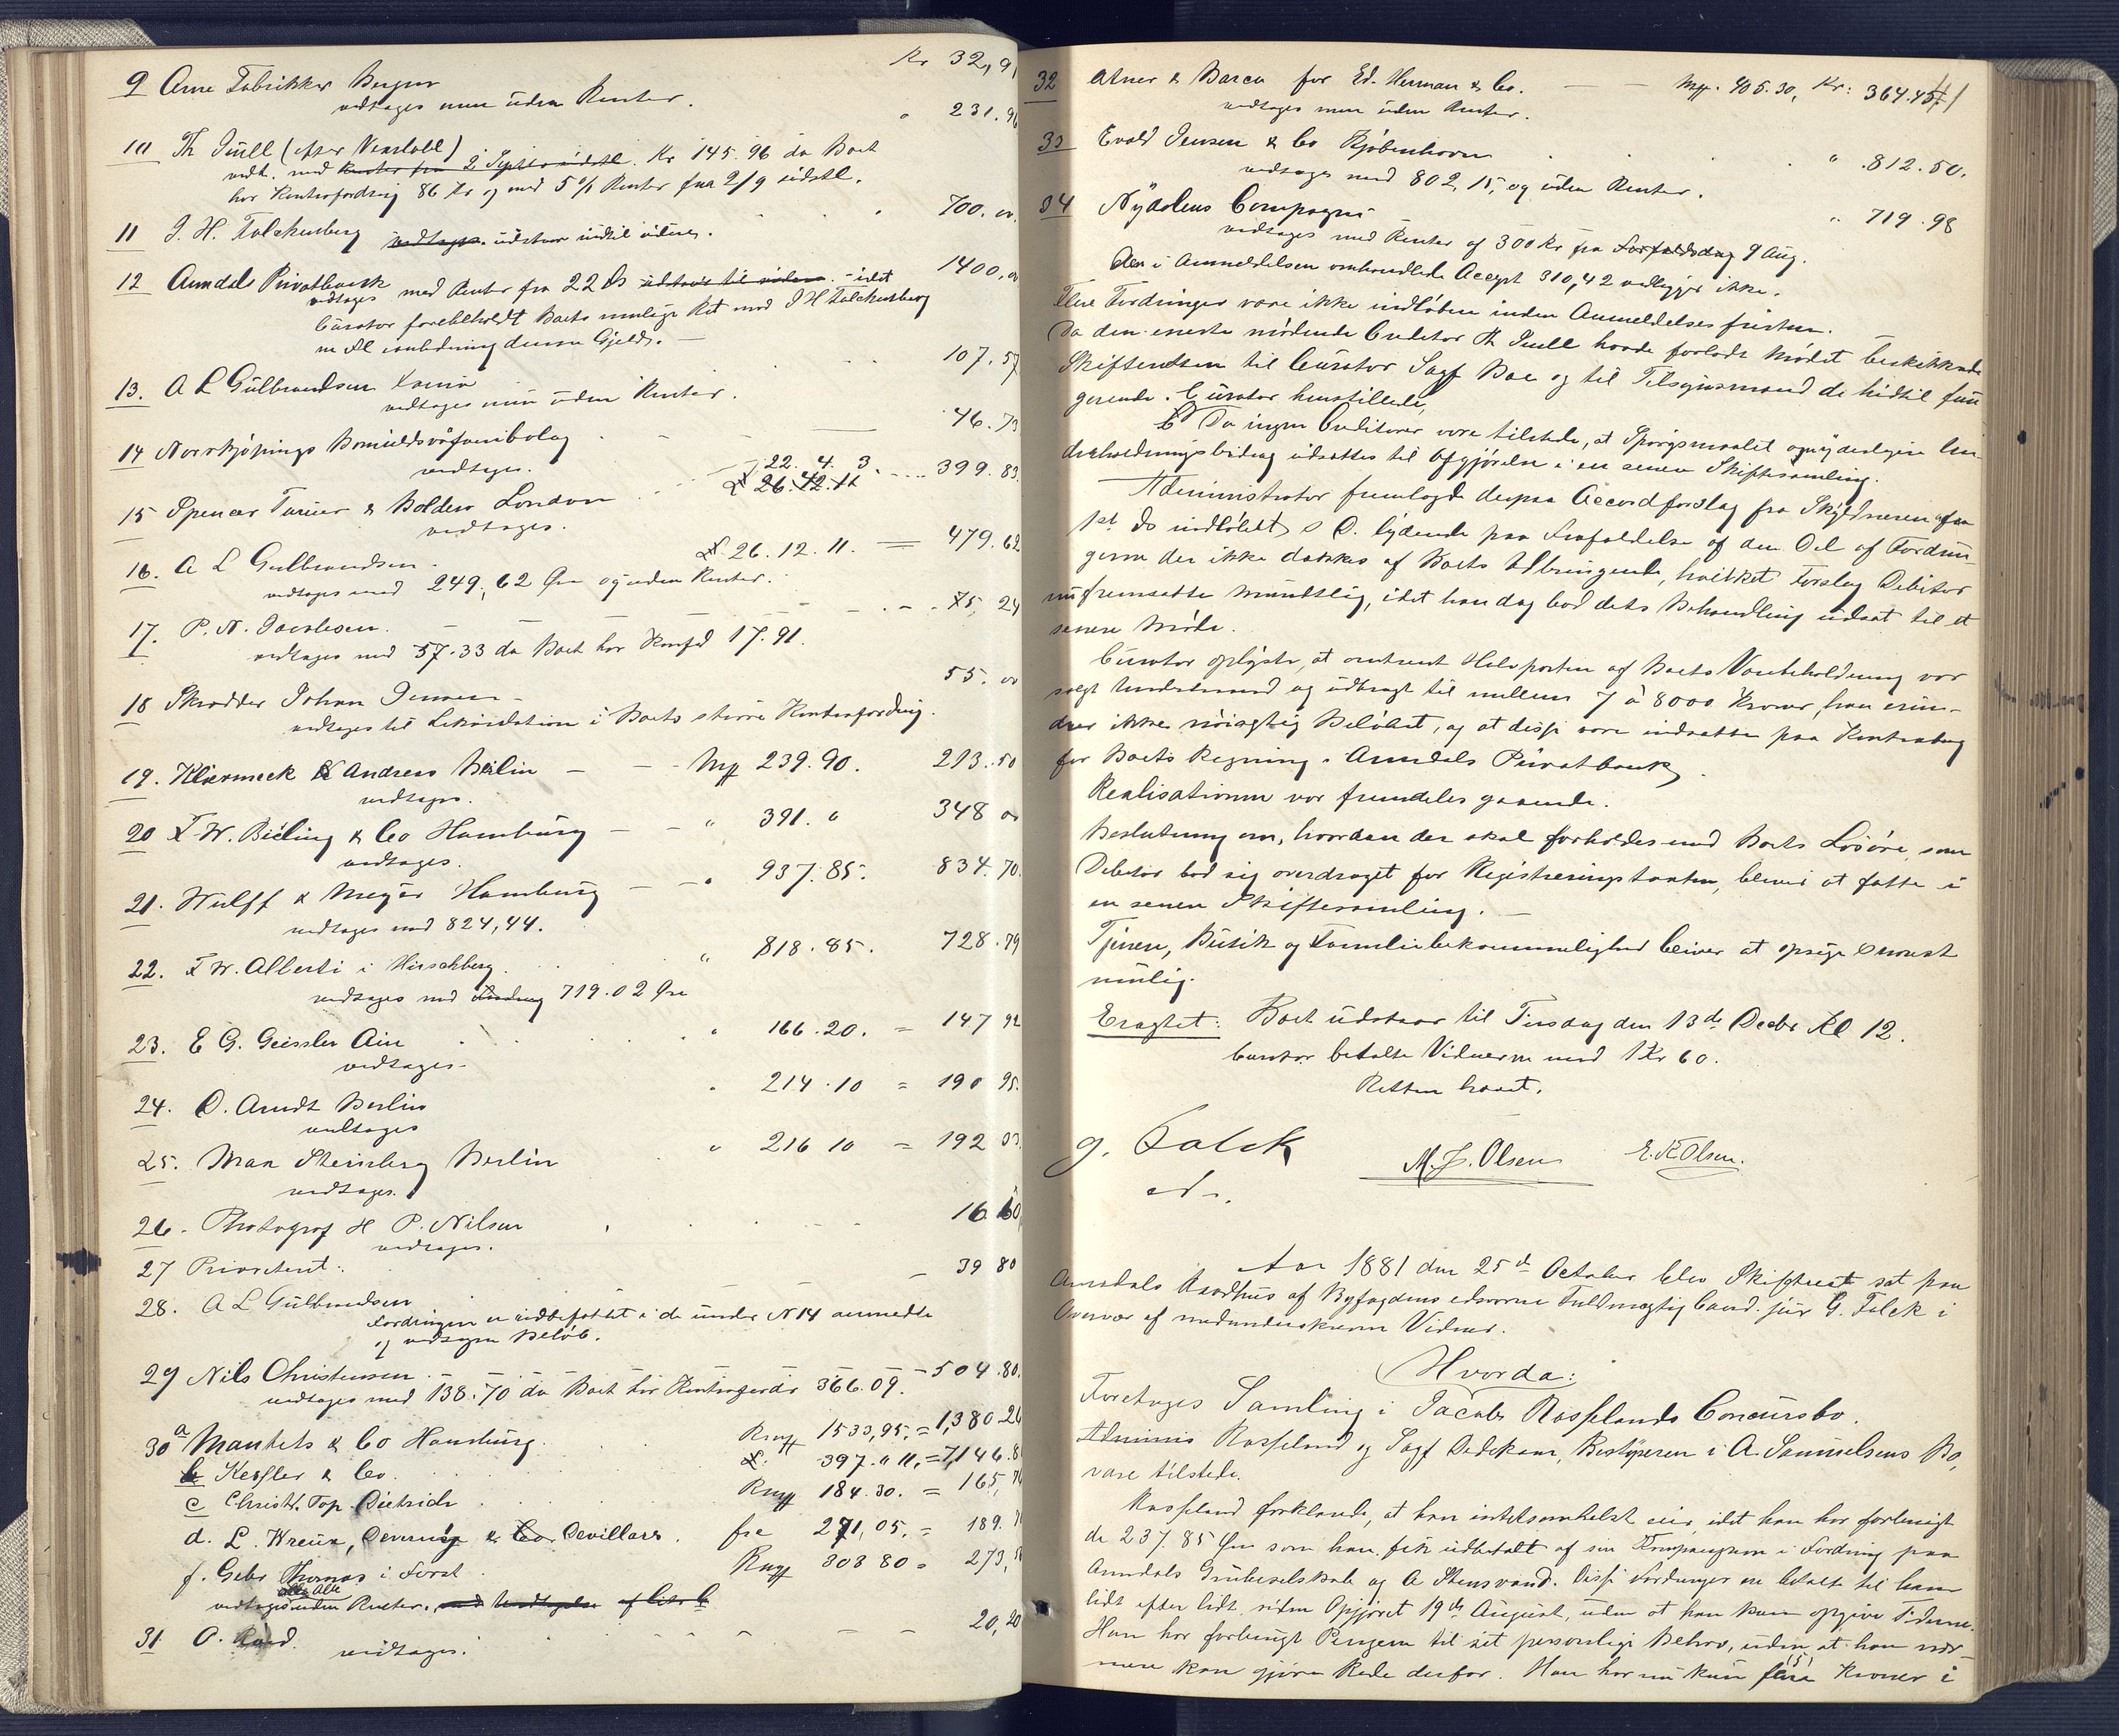 9 Arne Fabrikker Bergen Kr 32,91
vedtages men uden Renter.
10 Th Juell (efter Vendell) " 231.96
vedt. med Renter fra 2 Septbr sidstl. Kr 145.96 da Boet
har Kontrafordring 86 Kr og med 5% Renter fra 2/9 sidstl.
11 J. H. Falckenberg vedtages udstaar indtil videre. 700.00
12 Arendals Privatbank 1400.00
vedtages med Renter fra 22 ds udstaar til videre - idet
Curator forebeholdt Boets mulige Ret mod J H Falckenberg
i anledning denne Gjeld. -
13. A L Gulbrandsen 107.57
vedtages men uden Renter.
14 Norrkjøpings Bomuldsväfveribolag 46.73
vedtages.
22. 4. 3.
15 Spencer Turner & Boldero London £ 26.12.11 399.83
vedtages.
16. A L Gulbrandsen £ 26.12.11. = 479.62
vedtages med 249,62 Øre og uden Renter.
17. P. N. Jacobsen. 75,24
vedtages med 57.33 da Boet har Konfd 17.91.
18 Skrædder Johan Jensen 55.00
vedtages til Likvidation i Boets større Kontrafordring.
19. & Andress Berlin - Mf 239.90. 213.50
vedtages.
20 F. W. Bieling & Co Hamburg " 391. " 348 00
vedtages.
21. Wulff & Meyer Hamburg " 937.85. 834.70.
vedtages med 824,44.
22. F W. Alberti i Hirschberg " 818.85. 728.79
vedtages med 719.02 Øre
23. E G. Geissler " 166.20. = 147 92
vedtages.
24. O. Arndt Berlin " 214.10 = 190 95.
vedtages
25. Max Steinberg Berlin " 216 10 = 192 03
vedtages.
26. Photograf H P. Nilsen 16 60
vedtages.
27 Prioritert: 39 80
28. A L Gulbrandsen
Fordringen er indbefattet i de under N 14 anmeldte
og vedtagne Beløb.
29 Nils Christensen 504.80.
vedtages med 138.70 da Boet har Kontrafordr 366.09.
30 a Mankels & Co Hamburg. Rmf 1533,95. = 1,380.26
b Kessler & Co. £. 397. " 11. = 7,146.8
c Christ. Top. Dietrich Rmf 184.30. = 165,
d. L. & Co Devillars. frc 271,05. = 189.
f. Gebr Thomas i Forst Rmf 303 80 = 273,
alle
vedtages uden Renter.
31 O. vedtages. 20,20
32 & Barca for Ed. Herman & Co. Mf. 405.30, Kr: 364.45
vedtages men uden Renter.
33 Evald Jensen & Co Kjøbenhavn " 812.50.
vedtages med 802,15, og uden Renter.
34 Nydalens Compagni " 719.98
vedtages med Renter af 300 Kr fra Forfaldsdag 9 Aug.
Den i Anmeldelsen omhandlede Accept 310,42 vedligger ikke.
Flere Fordringer vare ikke indløbne inden Anmeldelsesfristen.
Da den eneste mødende Creditor Th Juell havde forladt Mødet beskikkede
Skifteretten til Curator Sagf Boe og til Tilsynsmand de hidtil fun-
gerende. Curator henstillede,
Da ingen Creditorer vare tilstede, at Spørgsmaalet om yderligere Un-
derholdningsbidrag udsattes til Afgjørelse i en senere Skiftesamling.
Administrator fremlagde derpaa Accordforslag fra Skyldneren
1st ds indløbet s D. lydende paa Frafaldelse af den Del af Fordrin-
gerne der ikke dækkes af Boets Udbringende, hvilket Forslag Debitor
nu fremsatte mundtlig, idet han dog bad dets Behandling udsat til et
senere Møde.
Curator oplyste, at omtrent Halvparten af Boets Varebeholdning var
solgt underhaand og udbragt til mellem 7 à 8000 Kroner, han erin-
drer ikke nøiagtig Beløbet, og at disse vare indsatte paa Kontrabog
for Boets Regning i Arendals Privatbank.
Realisationen var fremdeles gaaende.
Beslutning om, hvordan der skal forholdes med Boets Løsøre, som
Debitor bad sig overdraget for Registreringstaxten, bliver at fatte i
en senere Skiftesamling.
Tjener, Butik og Familiebekvemmelighed bliver at opsige snarest
mulig.
Eragtet: Boet udstaar til Tirsdag den 13de Decbr Kl 12.
Curator betalte Vidnerne med 1 Kr 60.
Retten hævet.
G. Falck M. J. Olsen E. K Olsen.
ed.
Aar 1881 den 25de October blev Skifteret sat paa
Arendals Raadhus af Byfogdens edsvorne Fuldmægtig Cand. jur G. Falck i
Overvær af medunderskrevne Vidner.
Hvorda:
Foretoges Samling i Jacob Rosselands Concursbo.
Rosseland og Sagf Dedekam, Bestyreren i A. Samuelsens Bo,
vare tilstede.
Rosseland forklarede, at han intetsomhelst eier, idet han har forbrugt
de 237.85 Øre som han fik udbetalt af sin Kompagnon i Fordring paa
Arendals Grubeselskab og A Stensvand. Disse Fordringer ere betalte til ham
lidt efter lidt siden Opgjøret 19de August, uden at han kan opgive Tiderne.
Han har forbrugt Pengene til sit personlige Behov, uden at han nær-
mere kan gjøre Rede derfor. Han har nu kun (5) Kroner i